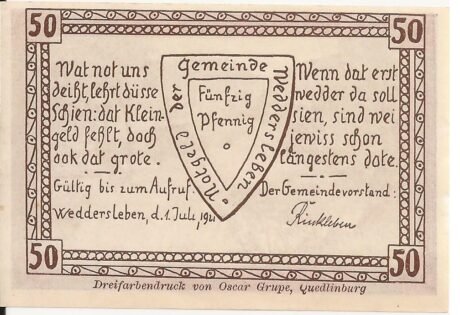 50
50
Wat not uns
deiht, lehrt düsse
Schien: dat Klein-
geld fehlt, doch
ook dat grote.
Gültig bis zum Aufruf.
Weddersleben, d. 1. Juli 
Notgeld der Gemeinde Weddersleben
Fünfzig
Pfennig
Wenn dat erst
wedder da soll
sien, sind wei
jewiss schon
längestens dote.
Der Gemeindevorstand:
Rinkleben
50
50
Dreifarbendruck von Oscar Grupe, Quedlinburg